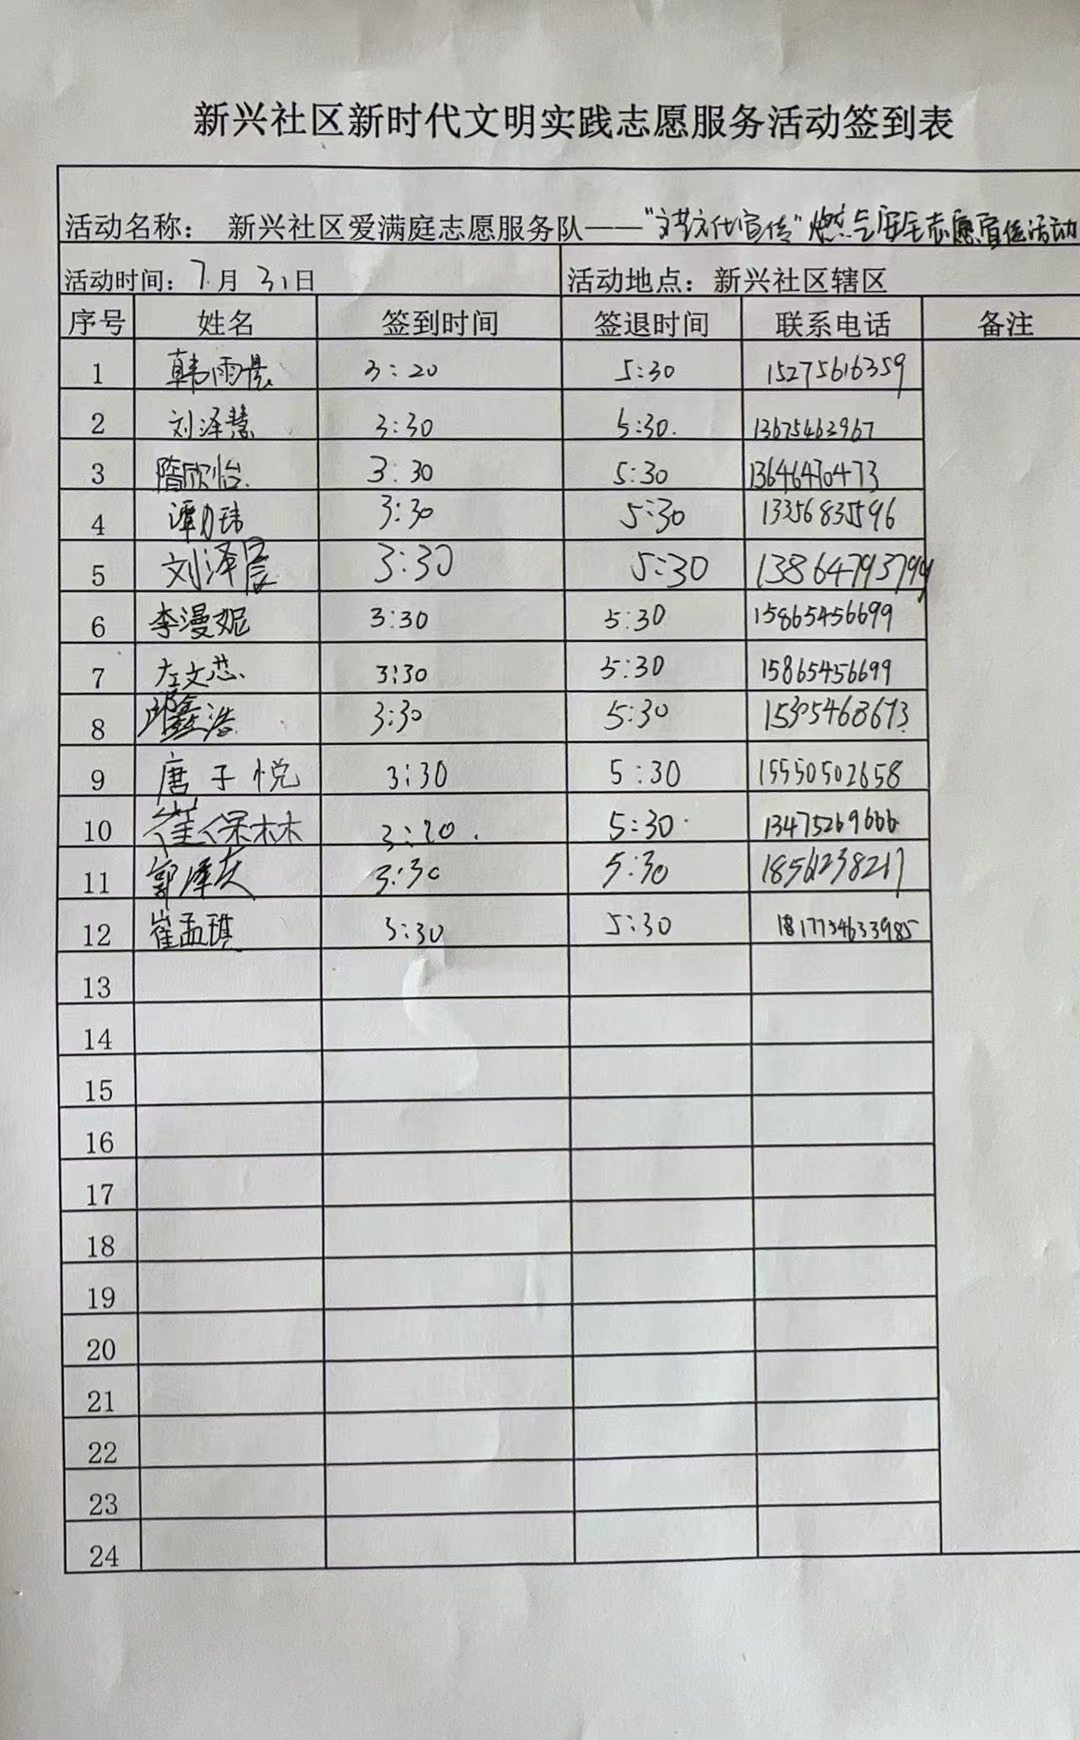 新兴社区新时代文明实践志愿服务活动签到表
活动名称： 新兴社区爱满庭志愿服务队——“文艺文化宣传”燃气安全志愿宣传活动
活动时间：7月31日 活动地点：新兴社区辖区
序号 姓名 签到时间 签退时间 联系电话 备注
1 韩雨 3:20 5:30 15275616359
2 刘泽慧 3:30 5:30. 13675462967
3 隋欣怡 3:30 5:30 13646470473
4 谭力玮 3:30 5:30 13356835596
5 刘泽宸 3:30 5:30 13864793799
6 李漫妮 3:30 5:30 15865456699
7 左文芯 3:30 5:30 15865456699
8 鑫浩 3:30 5:30 15305468673
9 唐子悦 3:30 5:30 15550502658
10 崔保林 3:20. 5:30 13475269666
11 郭泽 3:30 5:30 18561238217
12 崔孟琪 3:30 5:30
13
14
15
16
17
18
19
20
21
22
23
24